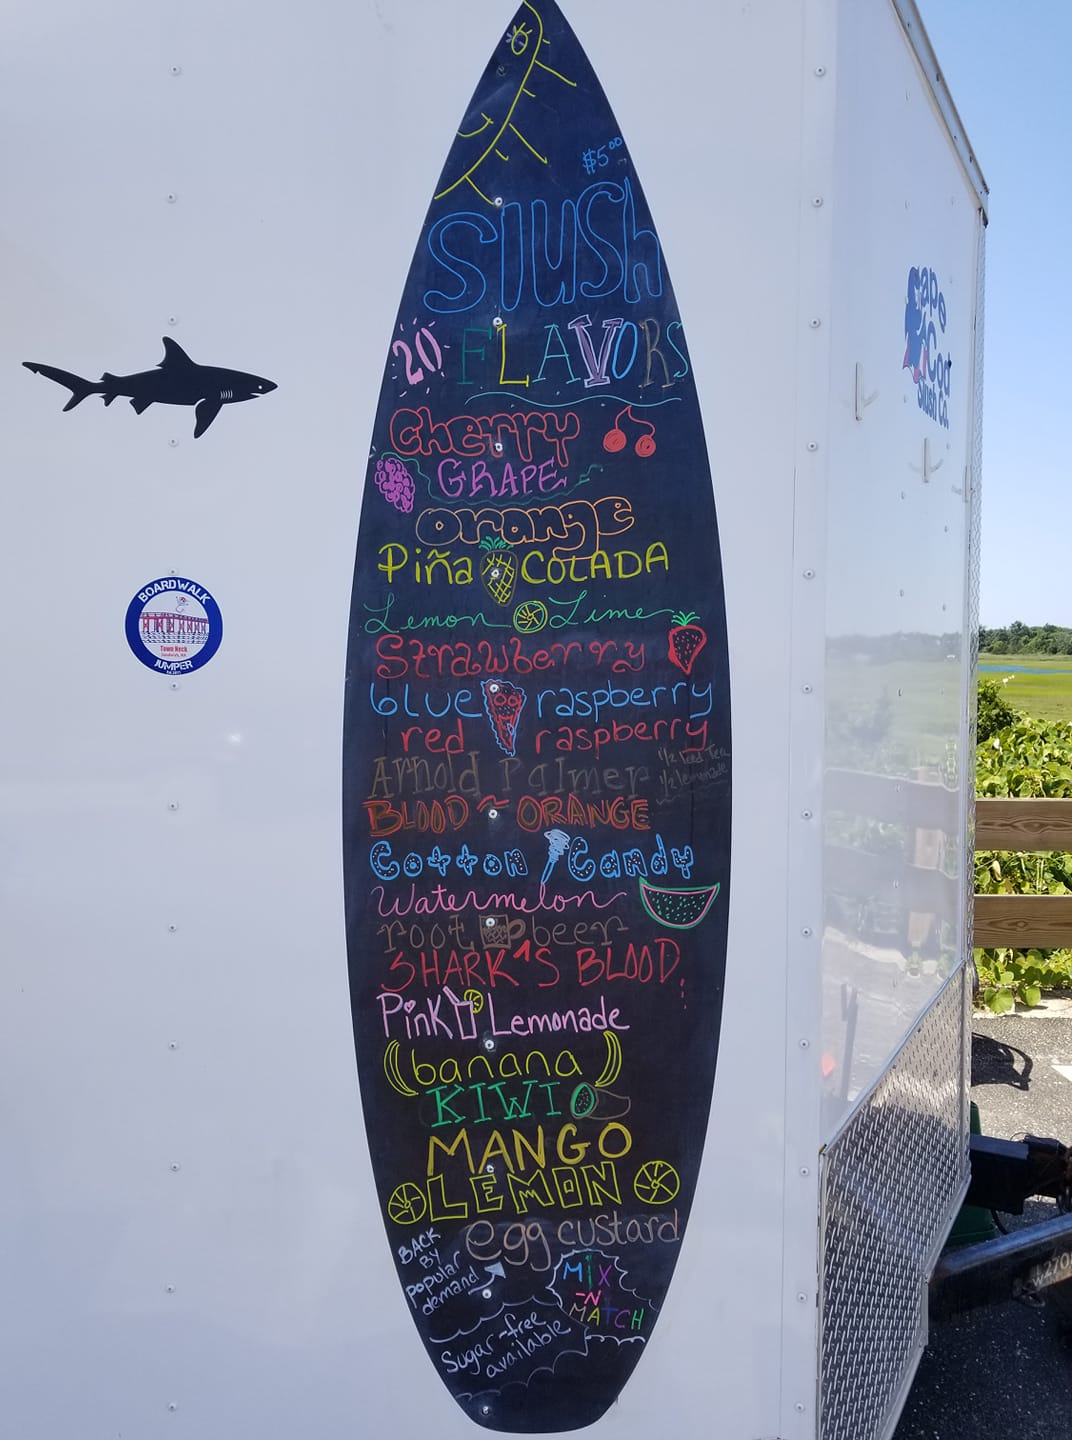 $5.00
Slush
20 FLAVORS
Cherry
GRAPE
orange
Piña COLADA
Lemon Lime
Strawberry
blue raspberry
red raspberry
Arnold Palmer
1/2 Iced Tea
1/2 lemonade
BLOOD ~ ORANGE
Cotton Candy
Watermelon
root beer
SHARK'S BLOOD
Pink Lemonade
banana
KIWI
MANGO
LEMON
egg custard
BACK
BY
popular
demand
MIX
-N
MATCH
Sugar-free
available
BOARDWALK
Town Neck
JUMPER
Cape
Cod
Slush Co.